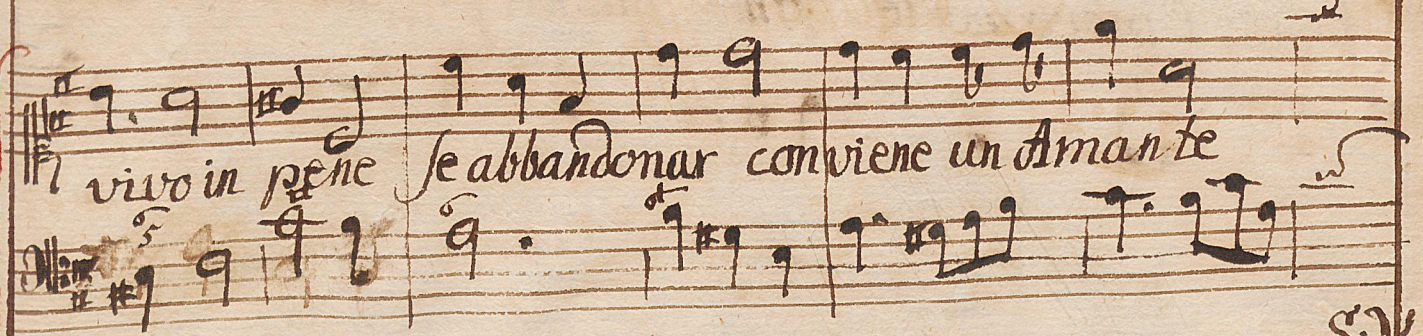 vivo in pene se abbandonar conviene un Amante
6
5
6